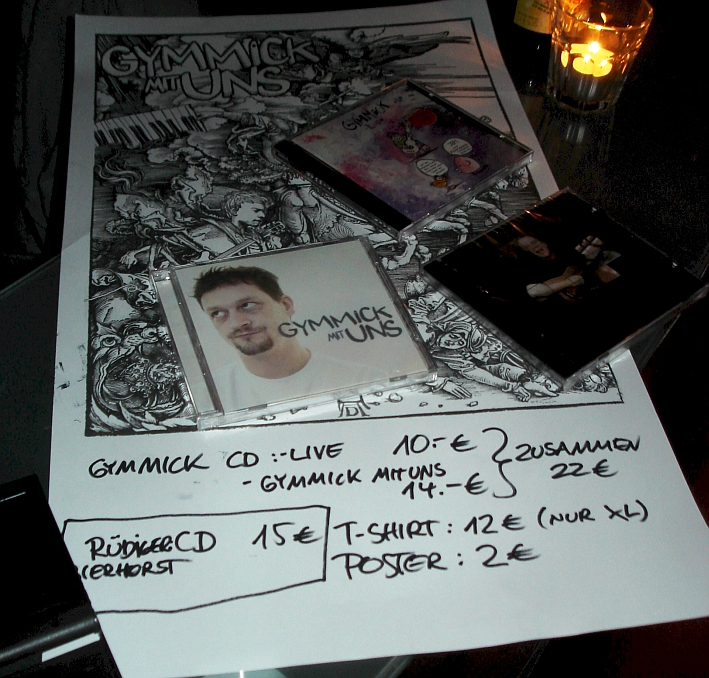 GYMMICK
MIT UNS
GYMMICK
GYMMICK
MIT UNS
GYMMICK CD :-LIVE 10.-€
- GYMMICK MIT UNS
14.-€
ZUSAMMEN
22€
RÜDIGER CD 15€
IERHORST
T-SHIRT: 12€ (NUR XL)
POSTER: 2€